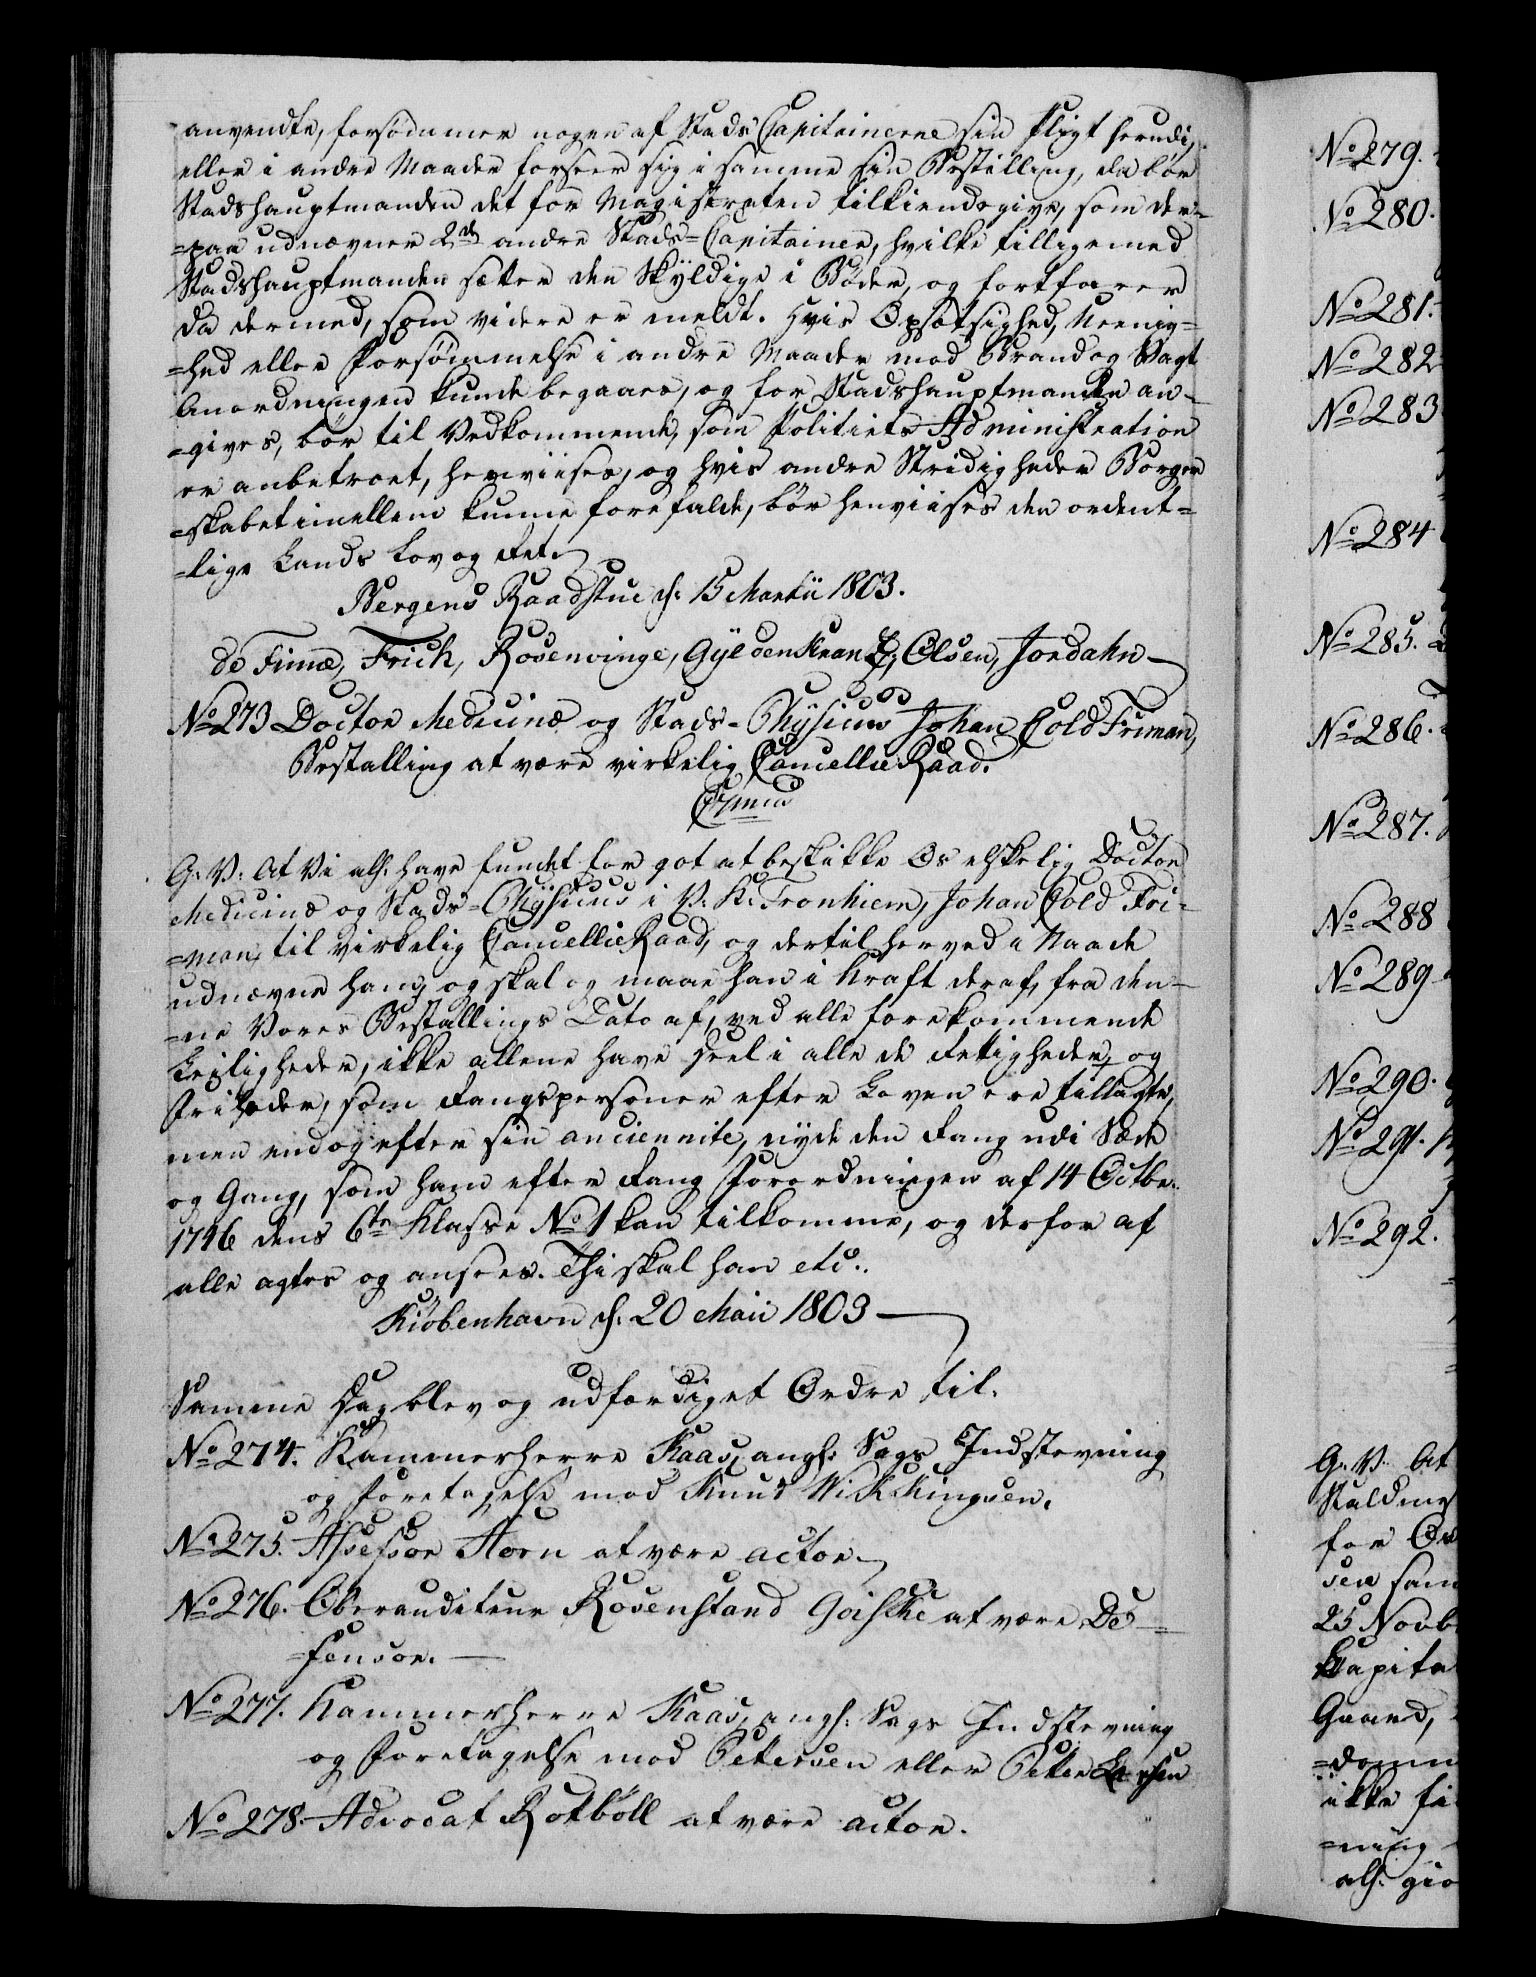 anvendte, forsømmer nogen af Stads Capitainerne sin Pligt herudi,
eller i andre Maader forseer sig i samme sin Bestilling, da bør
Stadshauptmanden det for Magistraten tilkiendegive, som der-
=paa udnævner 2de andre Stads=Capitainer, hvilke tilligemed
Stadshauptmanden sætter den Skyldige i Bøder, og fortfarer
da dermed, som videre er meldt. Hvis Opsætsighed, Ueenig=
=hed eller Forsømmelse i andre Maader mod Brand og Vagt
Anordningen kunde begaaes, og for Stadshauptmanden an-
=gives, bør til Vedkommende, som Politiets Administration
er anbetroet, henviises, og hvis andre Stridigheder Borger
=skabet imellem kunne forefalde, bør henviises den ordent=
=lige Lands Lov og Ret.
Bergens Raadstue d: 15 Martii 1803.
de Fine, Frich, Rosenvinge, Gyldenkrantz, Olsen, Jordahn
No 273 Doctor Medicinæ og Stads-Physicus Johan Cold Friman,
Bestalling at være virkelig CancellieRaad.
G. V: At Vi alh. have fundet for got at beskikke Os elskelig Doctor
Medicinæ og Stads=Physicus i V. K. Tronhiem, Johan Cold Fri-
=man, til virkelig CancellieRaad, og dertil herved i Naade
udnævne ham; og skal og maae han i Kraft deraf, fra den-
=ne Vores Bestallings Dato af, ved alle forekommende
Leiligheder, ikke allene have Deel i alle de Rettigheder, og
Friheder, som Rangspersoner efter Loven ere tillagte,
men endog efter sin anciennite, nyde den Rang udi Sæde
og Gang, som ham efter Rang Forordningen af 14 Octbr.
1746 dens 6te Klasse No 1 kan tilkomme, og derfor af
alle agtes og ansees. Thi skal han etc.
Kiøbenhavn d: 20 Maii 1803
Samme Dag blev og udfærdiget Ordre til.
No 274. Kammerherre Kaas, angh: Sags Indstevning
og Foretagelse mod Knud Wikkingsen.
No 275. Assessor Horn at være actor.
No 276. Oberauditeur Rosenstand Goiske at være De=
=fensor.
No 277. Kammerherre Kaas, angh: Sags Indstevning
og Foretagelse mod Petersen eller Peter
No 278. Advocat Rotbøll at være actor.
No 279.
No 280.
No 281.
No 282
No 283
No 284
No 285.
No 286.
No 287.
No 288
No 289
No 290.
No 291.
No 292.
G. V. At
for
25 Novb
Gaard,
ikke